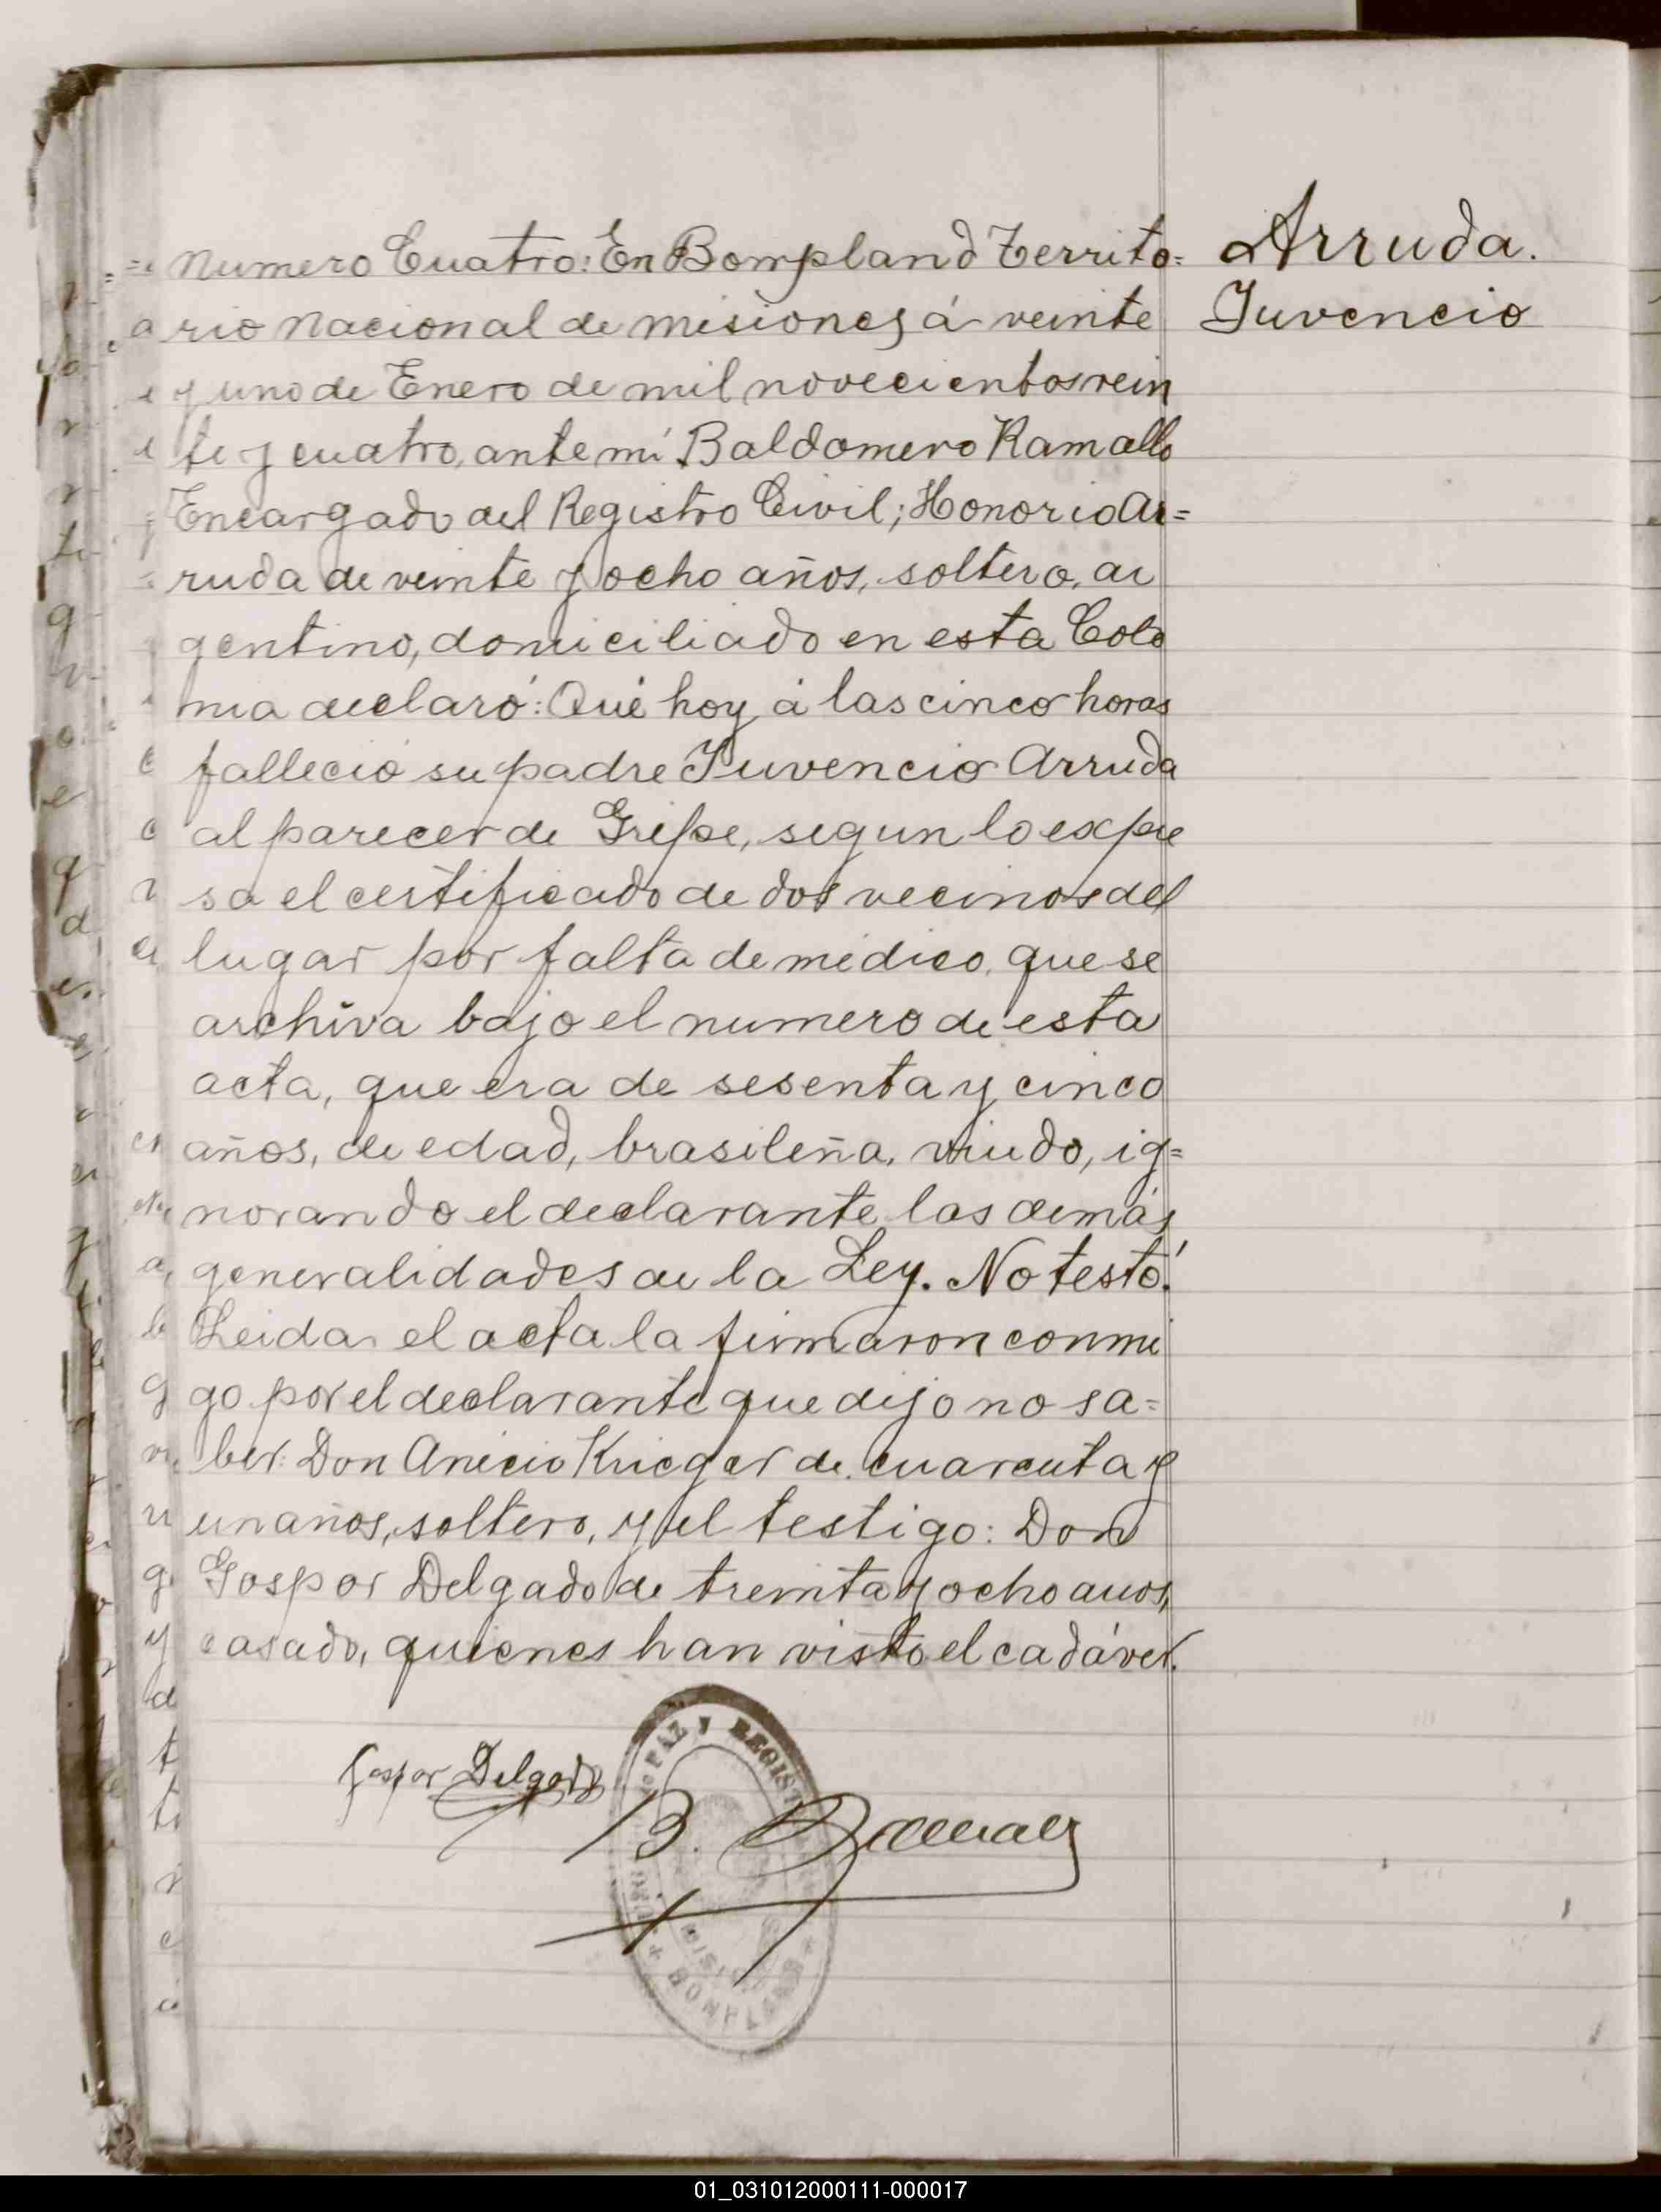 Numero Cuatro: En Bompland Territo=
rio Nacional de Misiones á veinte
y uno de Enero de mil novecientos vein
te y cuatro, ante mí Baldomero Ramallo
Encargado del Registro Civil; Honorio Ar=
ruda de veinte y ocho años, soltero, ar
gentino, domiciliado en esta Colo
nia declaró: Que hoy á las cinco horas
falleció su padre Juvencio Arruda
al parecer de Gripe, segun lo expre
sa el certificado de dos vecinos del
lugar por falta de médico, que se
archiva bajo el numero de esta
acta, que era de sesenta y cinco
años, de edad, brasileña, viudo, ig=
norando el declarante las demás
generalidades de la Ley. No testó.
Leida el acta la firmaron conmi
go por el declarante que dijo no sa=
ber: Don Anicio Krieger de cuarenta y
un años, soltero, y el testigo: Don
Gaspar Delgado de treinta y ocho años,
casado, quienes han visto el cadáver.
Arruda.
Juvencio
Gaspar Delgado
B. Ramallo
PAZ Y REGIST
BOMPLAND
01_031012000111-000017